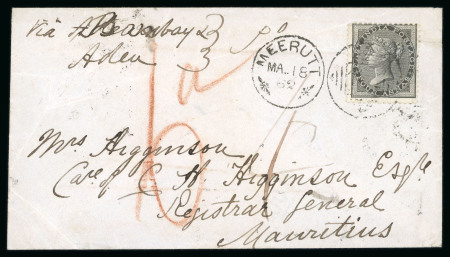 Via Bombay
Aden 3
MEERUTT
MA 18
62
EAST INDIA POSTAGE
FOUR ANNAS
Mrs Higginson
Care of C H Higginson Esqre
Registrar General
Mauritius